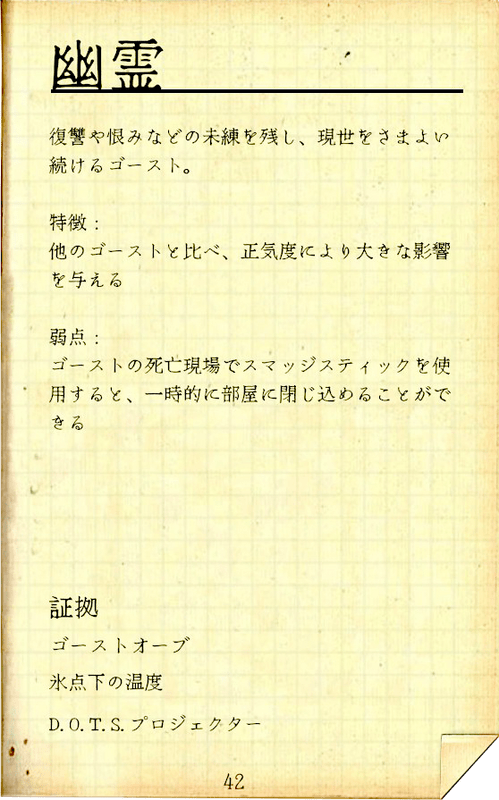 幽霊
復讐や恨みなどの未練を残し、現世をさまよい
続けるゴースト。
特徴：
他のゴーストと比べ、正気度により大きな影響
を与える
弱点：
ゴーストの死亡現場でスマッジスティックを使
用すると、一時的に部屋に閉じ込めることがで
きる
証拠
ゴーストオーブ
氷点下の温度
D.O.T.S.プロジェクター
42